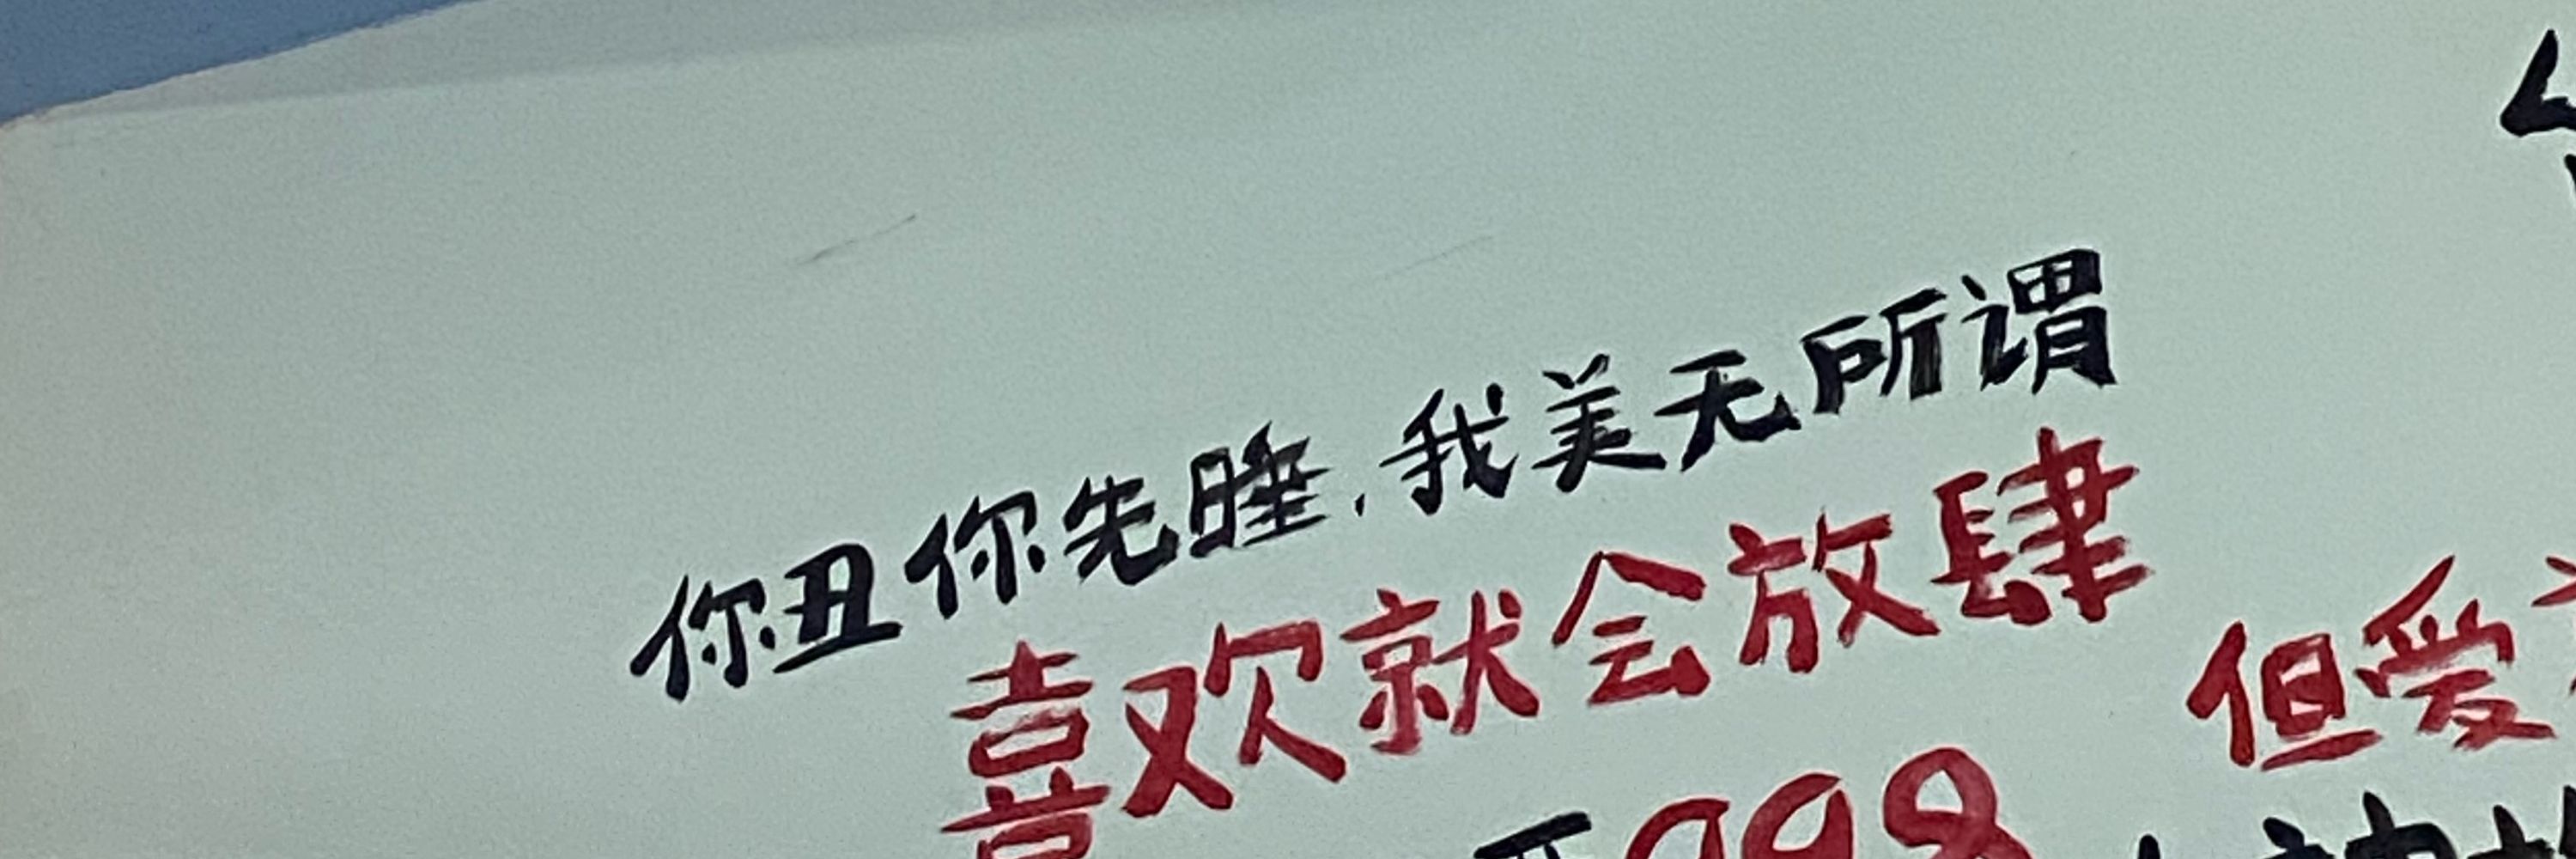 你丑你先睡，我美无所谓
喜欢就会放肆
但爱
998